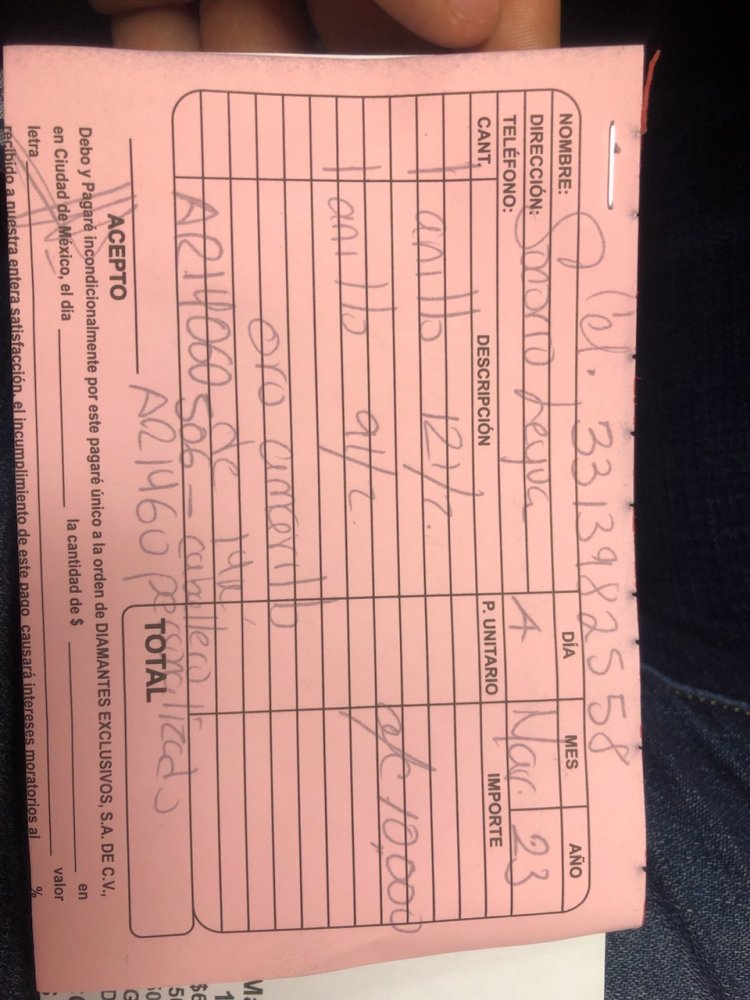 Cel. 3313982558
NOMBRE: Sonoro Leyva DÍA MES AÑO
DIRECCIÓN: 4 Mar. 23
TELÉFONO:
CANT. DESCRIPCIÓN P. UNITARIO IMPORTE
1 anillo 12 1/2.
a/c 10,000
1 anillo 9 1/2.
oro amarillo
de 14k
AR14060506 - caballero
AR1460 personalizado
TOTAL
ACEPTO
Debo y Pagaré incondicionalmente por este pagaré único a la orden de DIAMANTES EXCLUSIVOS, S.A. DE C.V., en
en Ciudad de México, el día la cantidad de $ valor
letra
recibido a nuestra entera satisfacción, el incumplimiento de este pago, causará intereses moratorios al %